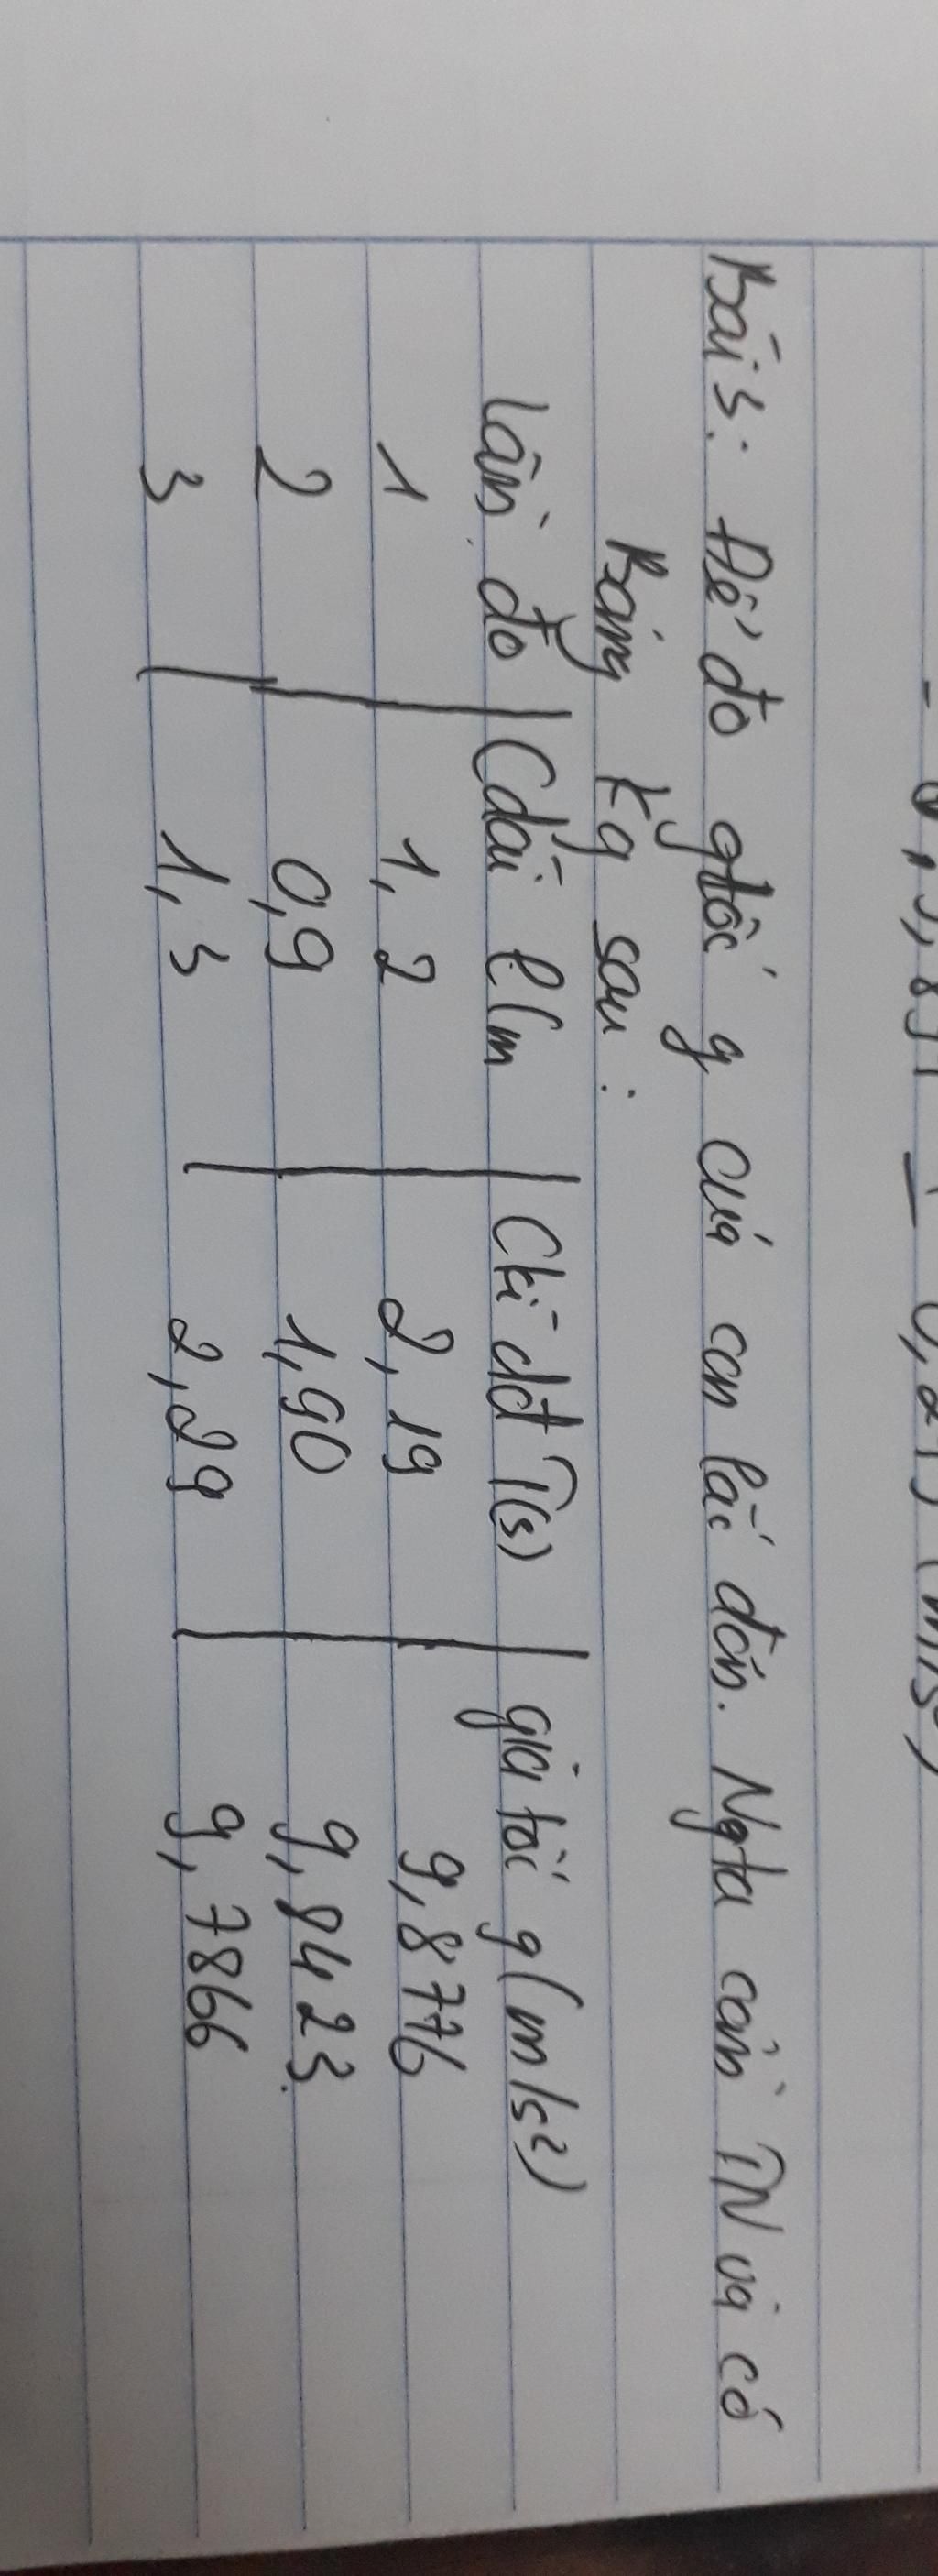 Bài 3: Để đo gtốc g của con lắc đơn. Ngta cần TN và có
Bảng kq sau:
Lần đo | Cdài l(m | Ckì dđ T(s) | gia tốc g (m/s²)
1 1,2 2,19 9,8776
2 0,9 1,90 9,8423
3 1,3 2,29 9,7866